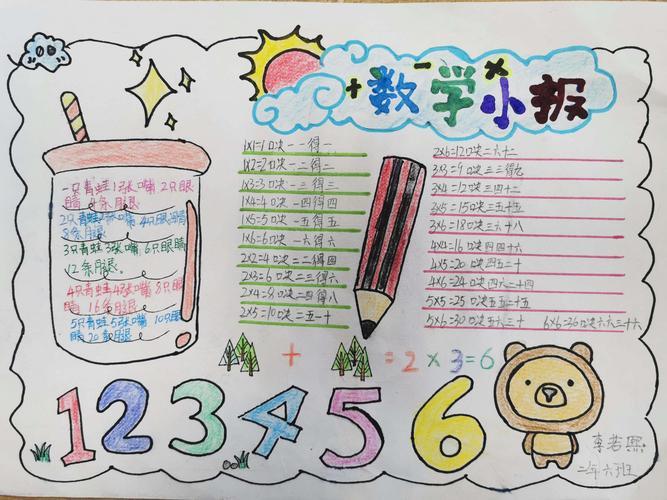 +数-学×小报
一只青蛙1张嘴 2只眼
睛 4条腿
2只青蛙2张嘴 4只眼睛
8条腿
3只青蛙3张嘴 6只眼睛
12条腿
4只青蛙4张嘴 8只眼
睛 16条腿
5只青蛙5张嘴 10只眼
睛20条腿
1×1=1口决一一得一
1×2=2口决一二得二
1×3=3口决一三得三
1×4=4口决一四得四
1×5=5口决一五得五
1×6=6口决一六得六
2×2=4口决二二得四
2×3=6口决二三得六
2×4=8口决二四得八
2×5=10口决二五一十
2×6=12口决二六十二
3×3=9口决三三得九
3×4=12口决三四十二
3×5=15口决三五十五
3×6=18口决三六十八
4×4=16口决四四十六
4×5=20口决四五二十
4×6=24口决四六二十四
5×5=25口决五五二十五
5×6=30口决五六三十 6×6=36口决六六三十六
+ = 2 × 3 = 6
1 2 3 4 5 6
李若熙
二年六班